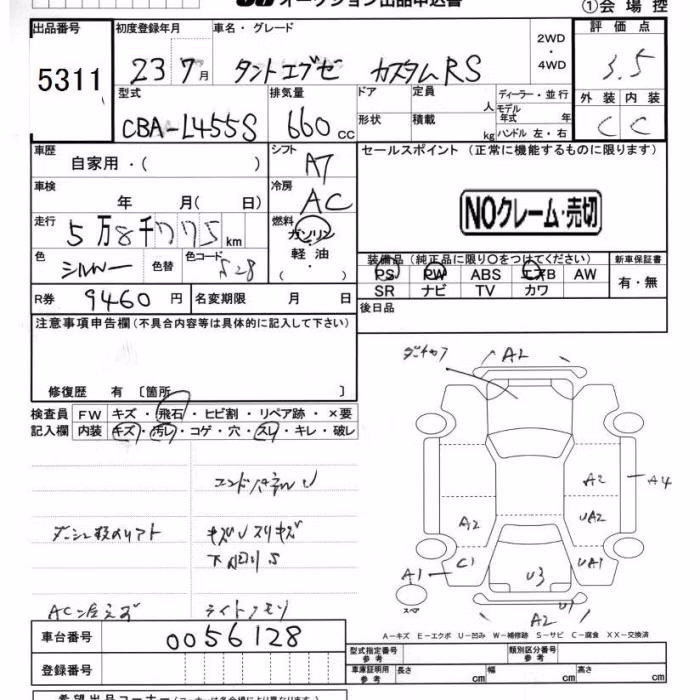 オークション出品申込書
①会場控
出品番号 初度登録年月 車名・グレード 2WD・4WD 評価点
5311 23 7月 タントエグゼ カスタムRS 3.5
型式 排気量 ドア 定員 人 ディーラー・並行
CBA-L455S 660 cc 形状 積載 kg モデル年式 年 ハンドル 左・右
外装 内装
C C
車歴 自家用・( ) シフト A7 セールスポイント (正常に機能するものに限ります)
車検 年 月( 日) 冷房 AC
NOクレーム・売切
走行 5万8千775km 燃料 ガソリン 軽油 ・( )
色 シルバー 色替 色コード S28
装備品 (純正品に限り○をつけてください) 新車保証書
PS PW ABS エアB AW 有・無
SR ナビ TV カワ
R券 9460円 名変期限 月 日 後日品
注意事項申告欄(不具合内容等は具体的に記入して下さい)
修復歴 有 〔箇所 〕
検査員 FW キズ・飛石・ヒビ割・リペア跡・×要
記入欄 内装 キズ・汚レ・コゲ・穴・スレ・キレ・破レ
A2
エンドパネルU
A2 A4
A2 UA2
キズUスリキズ
下回りS
C1 UA1
A1 U3
スペア U1
A2
AC冷えず ライトクモリ
A−キズ E−エクボ U−凹み W−補修跡 S−サビ C−腐食 XX−交換済
車台番号 0056128
型式指定番号 参考 類別区分番号 参考
登録番号 車庫証明用 参考 長さ cm 幅 cm 高さ cm
希望出品コーナー